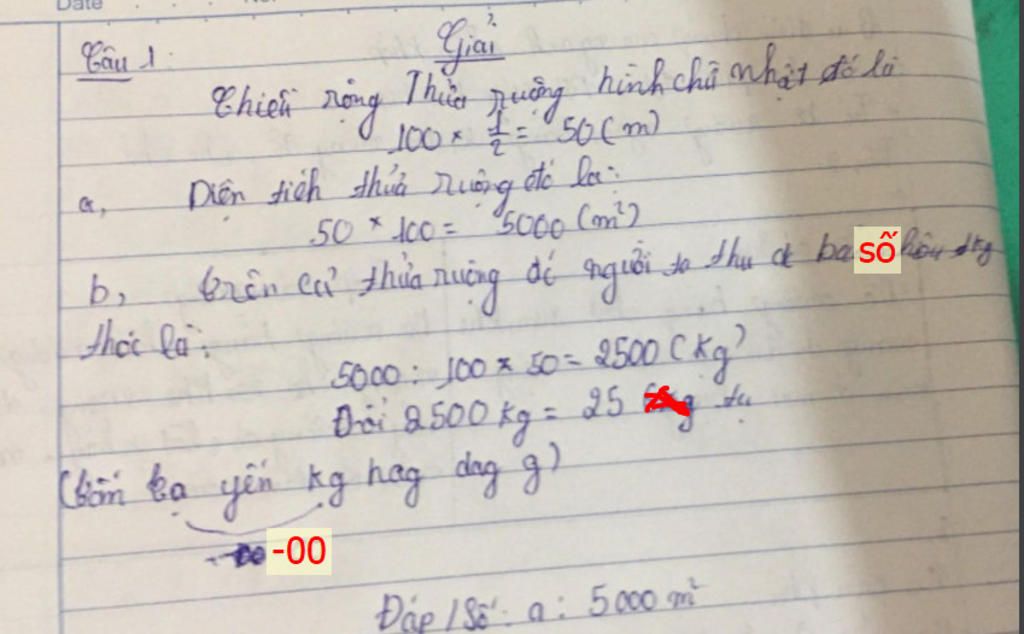 Date
Câu 1:
Giải
Chiều rộng Thửa ruộng hình chữ nhật đó là
100 × 1/2 = 50 (m)
a, Diện tích thửa ruộng đó là:
50 × 100 = 5000 (m²)
b, trên cả thửa ruộng đó người ta thu đc ba số kg
thóc là:
5000 : 100 × 50 = 2500 (kg)
Đổi 2500 kg = 25 tạ
(tấn tạ yến kg hag dag g)
-00
Đáp số: a: 5000 m²